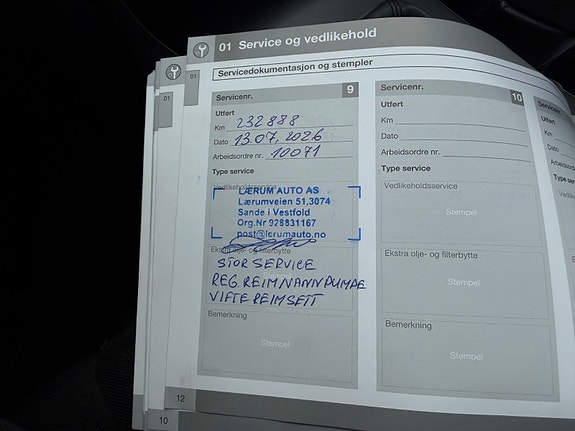 01 Service og vedlikehold
Servicedokumentasjon og stempler
01
01
Servicenr. 9
Utført
Km 232888
Dato 13.07.2026
Arbeidsordre nr. 10071
Type service
Vedlikeholdsservice
LÆRUM AUTO AS
Lærumveien 51,3074
Sande i Vestfold
Org.Nr 928831167
post@lerumauto.no
Ekstra olje- og filterbytte
STOR SERVICE
REG REIM/VANNPUMPE
VIFTEREIMSETT
Bemerkning
Stempel
12
10
Servicenr. 10
Utført
Km
Dato
Arbeidsordre nr.
Type service
Vedlikeholdsservice
Stempel
Ekstra olje- og filterbytte
Stempel
Bemerkning
Stempel
Servicenr.
Utført
Km
Dato